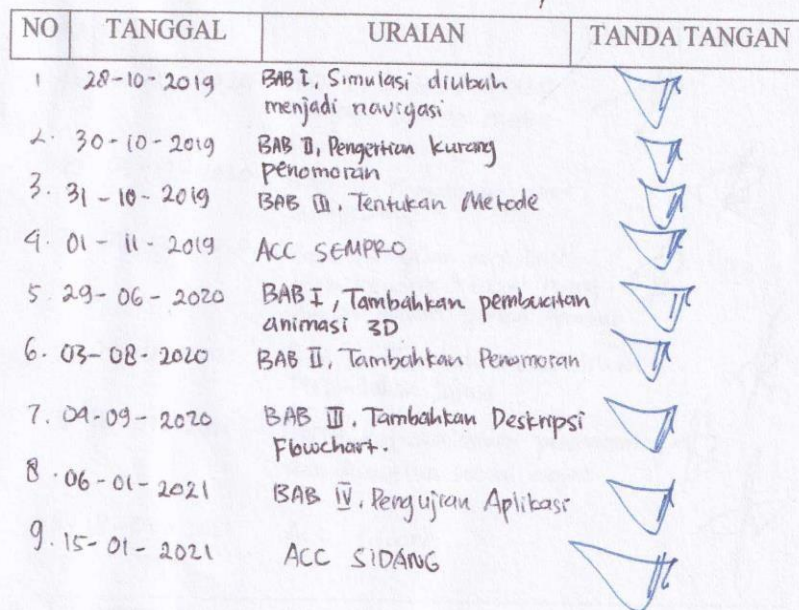 NO TANGGAL URAIAN TANDA TANGAN
1 28-10-2019 BAB I, Simulasi diubah
menjadi navigasi
2. 30-10-2019 BAB II, Pengertian kurang
penomoran
3. 31-10-2019 BAB III. Tentukan Metode
4. 01-11-2019 ACC SEMPRO
5. 29-06-2020 BAB I, Tambahkan pembuatan
animasi 3D
6. 03-08-2020 BAB II. Tambahkan Penomoran
7. 09-09-2020 BAB III. Tambahkan Deskripsi
Flowchart.
8. 06-01-2021 BAB IV. Pengujian Aplikasi
9. 15-01-2021 ACC SIDANG